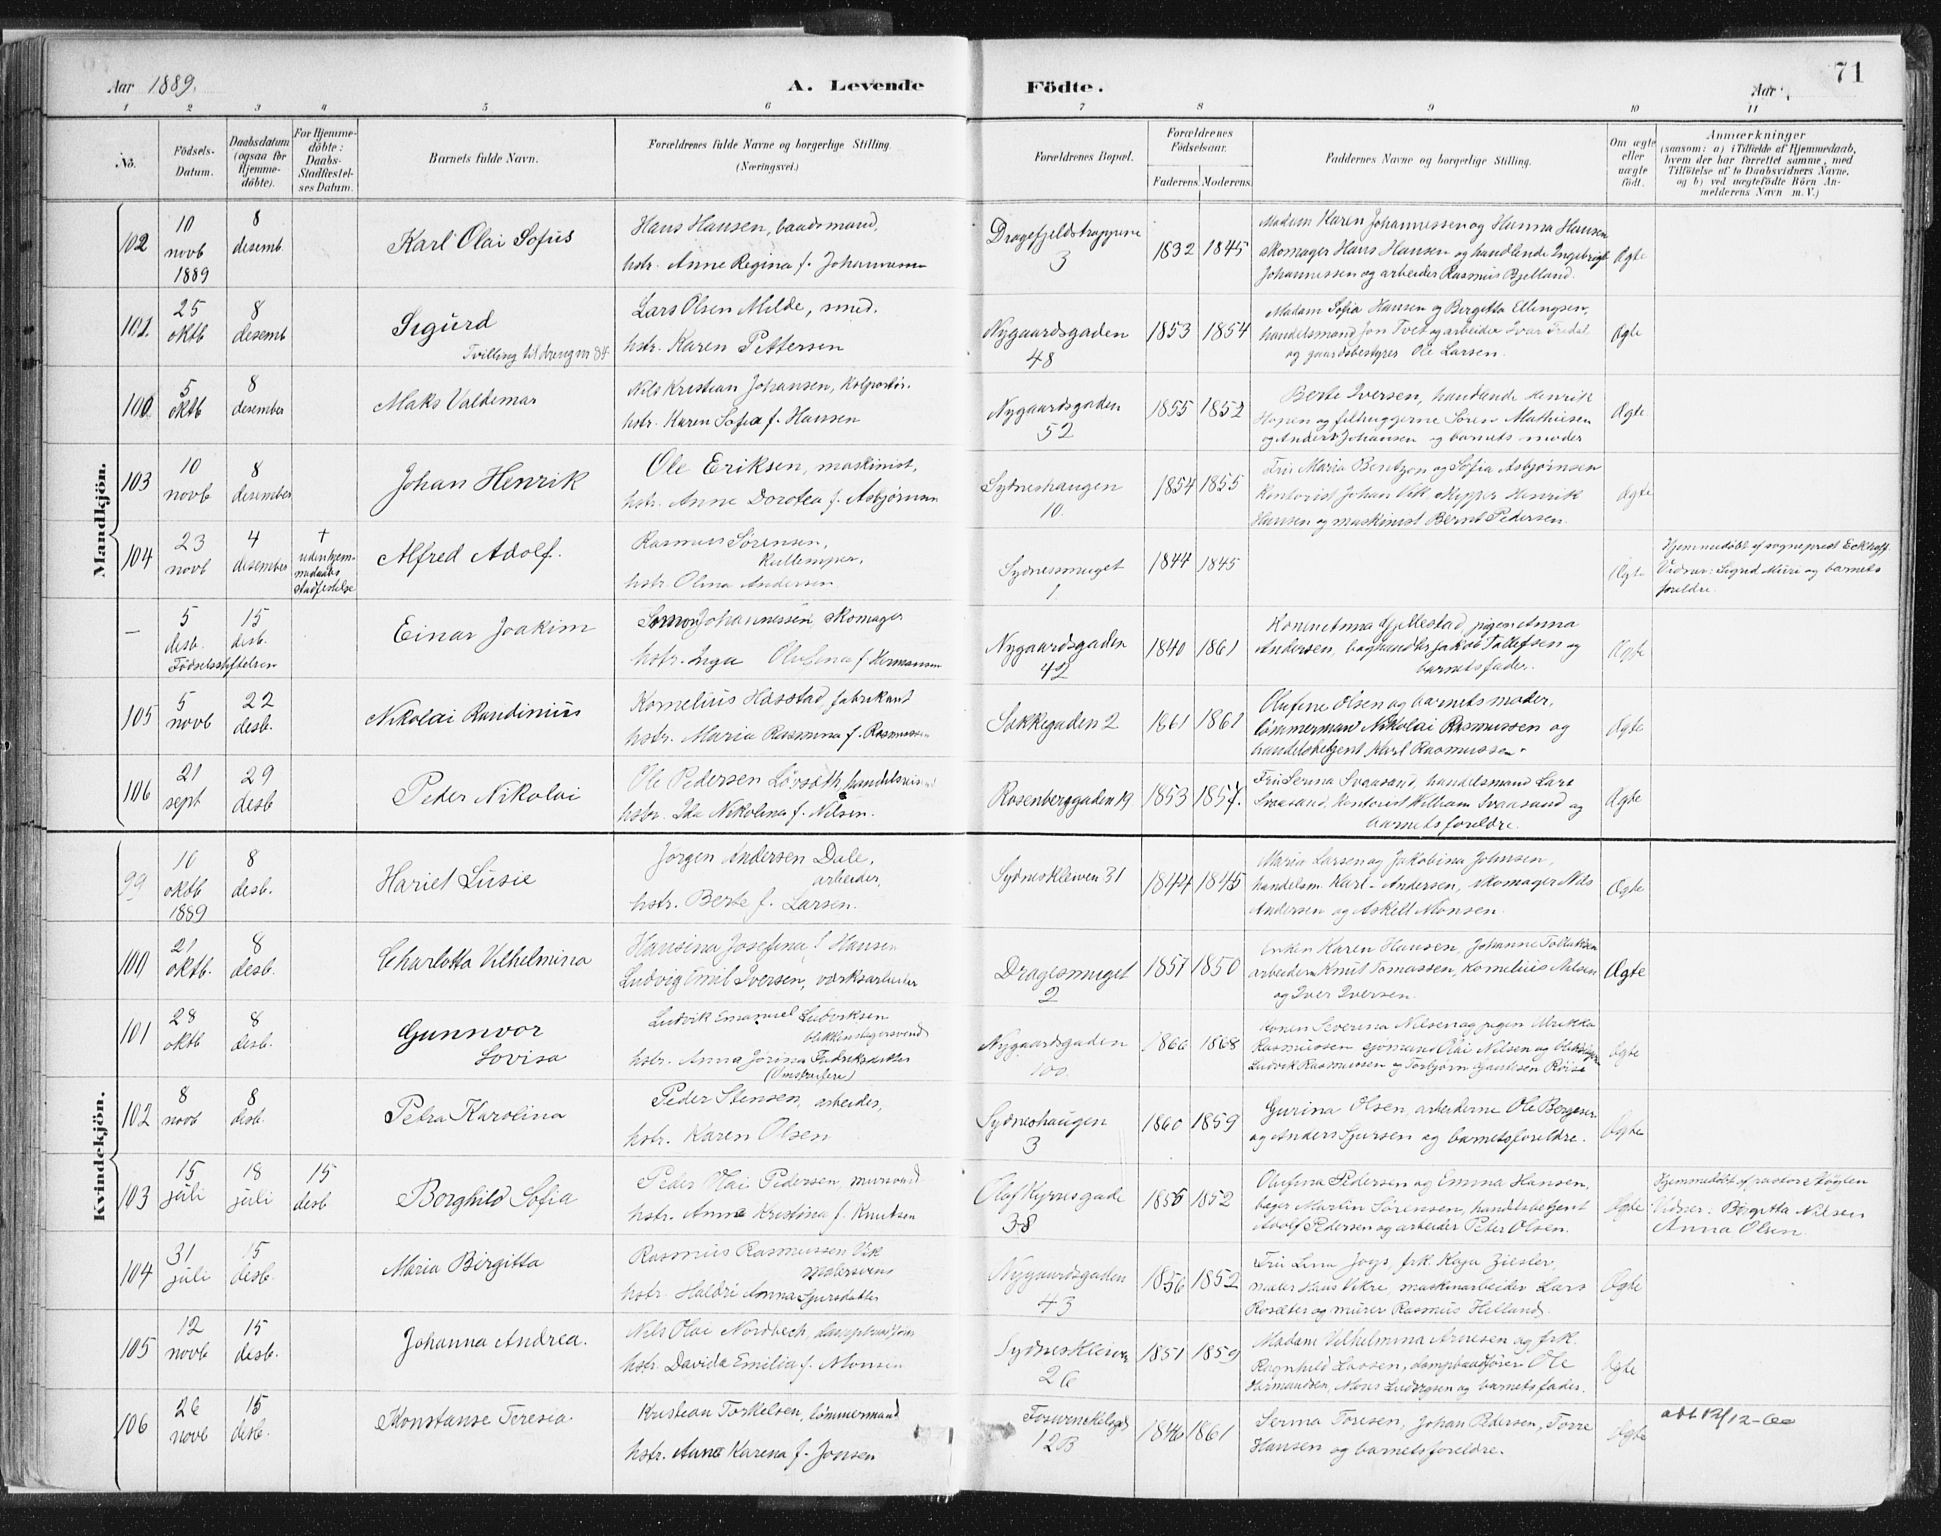 71
Aar 1889.
A. Levende
Födte.
Aar
1 2 3 4 5 6 7 8 9 10 11
No.
Födsels-Datum.
Daabsdatum (ogsaa for Hjemmedöbte).
For Hjemmedöbte: Daabs-Stadfæstelses Datum.
Barnets fulde Navn.
Forældrenes fulde Navne og borgerlige Stilling.
(Næringsvei.)
Forældrenes Bopæl.
Forældrenes Födselsaar.
Faderens. Moderens.
Faddernes Navne og borgerlige Stilling.
Om ægte eller uægte födt.
Anmærkninger
(saasom: a) i Tilfælde af Hjemmedaab, hvem der har forrettet samme, med Tilföielse af to Daabsvidners Navne, og b) ved uægtefödte Börn Anmelderens Navn m. V.)
Mandkjön.
102 10 novb 1889 8 desemb. Karl Olai Sofus
Hans Hansen, baadsmand,
hstr. Anne Regina f. Johannesen
Dragefjeldstrappene 3 1832 1845
Madam Karen Johannessen og Hanna Hansen
skomager Hans Hansen og handlende Ingebrigt
Johannessen og arbeider Rasmus Bjelland.
Ægte
101. 25 oktb 8 desemb Sigurd
Tvilling til dreng nr 84.
Lars Olsen Milde, smed.
hstr. Karen Pettersen
Nygaardsgaden 48 1853 1854
Madam Sofia Hansen og Bergitta Ellingsen,
handelsmand Jon Tvet og arbeider Ivar
og gaardsbestyrer Ole Larsen.
Ægte
100. 5 oktb 8 desember Maks Valdemar
Nils Kristian Johansen, kolportør.
hstr. Karen Sofia f. Hansen
Nygaardsgaden 52 1855 1852
Berte Iversen, handlende Henrik
Hopen og filhuggerne Søren Mathiesen
og Anders Johansen og barnets moder
Ægte
103 10 novb 8 desember Johan Henrik
Ole Eriksen, maskinist,
hstr. Anne Dorotea f. Asbjørnsen
Sydneshaugen 10. 1854 1855
Fru Maria Bentzon og Sofia Asbjørnsen
Kontorist Johan Vik Skipper Henrik
Hansen og maskinist Bernt Pedersen.
Ægte
104 23 novb 4 desember † uden hjemmedaabs stadfestelse Alfred Adolf.
Rasmus Sørensen,
Kullemper,
hstr. Olina Andersen
Sydnessmuget 1. 1844 1845
Ægte
Hjemmedøbt af sogneprest Eckhoff
Vidner: Sigrid Muri og barnets
foreldre.
— 5 desb. 15 desb. Fødselsstiftelsen Einar Joakim
Simon Johannessen skomager
hstr. Inga Olufina f. Hermansen
Nygaardsgaden 42 1840 1861
Konen Anna Gjellestad, pigen Anna
Andersen, boghandler Jakob Tollefsen og
barnets fader.
Ægte
105 5 novb 22 desb. Nikolai Randinius
Kornelius Hasstad fabrikant
hstr. Maria Rasmina f. Rasmussen
Sakkegaden 2 1861 1861
Olufine Olsen og barnets moder,
tømmermand Nikolai Rasmussen og
handelsbetjent Karl Rasmussen.
Ægte
106 21 sept 29 desb Peder Nikolai
Ole Pedersen Løvseth, handelsreisende
hstr. Ida Nikolina f. Nilsen.
Rosenberggaden 19 1853 1857.
Fru Serina Svaasand, handelsmand Lars
Svaasand, Kontorist Wilhelm Svaasand og
barnets foreldre.
Ægte
Kvindekjön.
99 10 oktb 1889 8 desb. Hariet Lusie
Jørgen Andersen Dale,
arbeider,
hstr. Berte f. Larsen.
Sydneskleven 31 1844 1845
Maria Larsen og Jakobina Johnsen,
handelsm. Karl Andersen, skomager Nils
Andersen og Askell Monsen.
Ægte
100 21 oktb. 8 desb. Charlotta Vilhelmina
Hansina Josefina f. Hansen
Ludvig Emil Iversen, værksarbeider
Dragesmuget 2 1857 1850
Enken Karen Hansen, Johanne Tollaksen
arbeidern Knut Tomassen, Kornelius Nilsen
og Iver Iversen.
Ægte
101 28 oktb 8 desb. Gunnvor
Lovisa
Ludvik Emanuel Ludviksen
blikkenslagersvend
hstr. Anna Jorina Fredriksdatter
Nygaardsgaden 100. 1866 1868
Konen Severina Nilsen og pigen Ulrikka
Rasmussen sjømand Olai Nilsen og
Ludvik Rasmussen og Torbjørn
Ægte
102 8 novb 8 desb. Petra Karolina
Peder Stensen, arbeider,
hstr. Karen Olsen
Sydneshaugen 3 1860 1859
Gurina Olsen, arbeiderne Ole Bergesen
og Anders Sjursen og barnets foreldre.
Ægte
103 15 juli 18 juli 15 desb Borghild Sofia
Peder Olai Pedersen, mursvend
hstr. Anne Kristina f. Knutsen
Olaf Kyrresgade 38 1855 1852
Olufina Pedersen og Emma Hansen,
bager Martin Sørensen, handelsbetjent
Adolf Pedersen og arbeider Peter Olsen.
Ægte
Hjemmedøbt af pastor Skøglen
Vidner: Birgitta Nilsen
Anna Olsen.
104 31 juli 15 desb. Maria Birgitta
Rasmus Rasmussen Vik
Malersvend
hstr. Haldri Anna Sjursdatter
Nygaardsgaden 43 1856 1852
Fru Lina Joys, frk. Kaja Ziesler,
maler Hans Vikre, maskinarbeider Lars
Rosæter og murer Rasmus Helland.
Ægte
105 12 novb 15 desb. Johanna Andrea.
Nils Olai Nordbech, dampbaadfører
hstr. Davida Emilia f. Monsen
Sydneskleven 26 1851 1859
Madam Vilhelmina Arnesen og frk.
Ragnhild Larsen, dampbaadfører Ole
Hermandsen, Mons Ludvigsen og barnets fader.
Ægte
106 26 novb 15 desb. Konstanse Teresia
Kristian Torkelsen, tømmermand
hstr. Anne Karena f. Jonsen
Fosvinckelsgd 12B 1846 1861
Serina Toresen, Johan Pedersen, Torre
Hansen og barnets foreldre.
Ægte
att 12/12-60